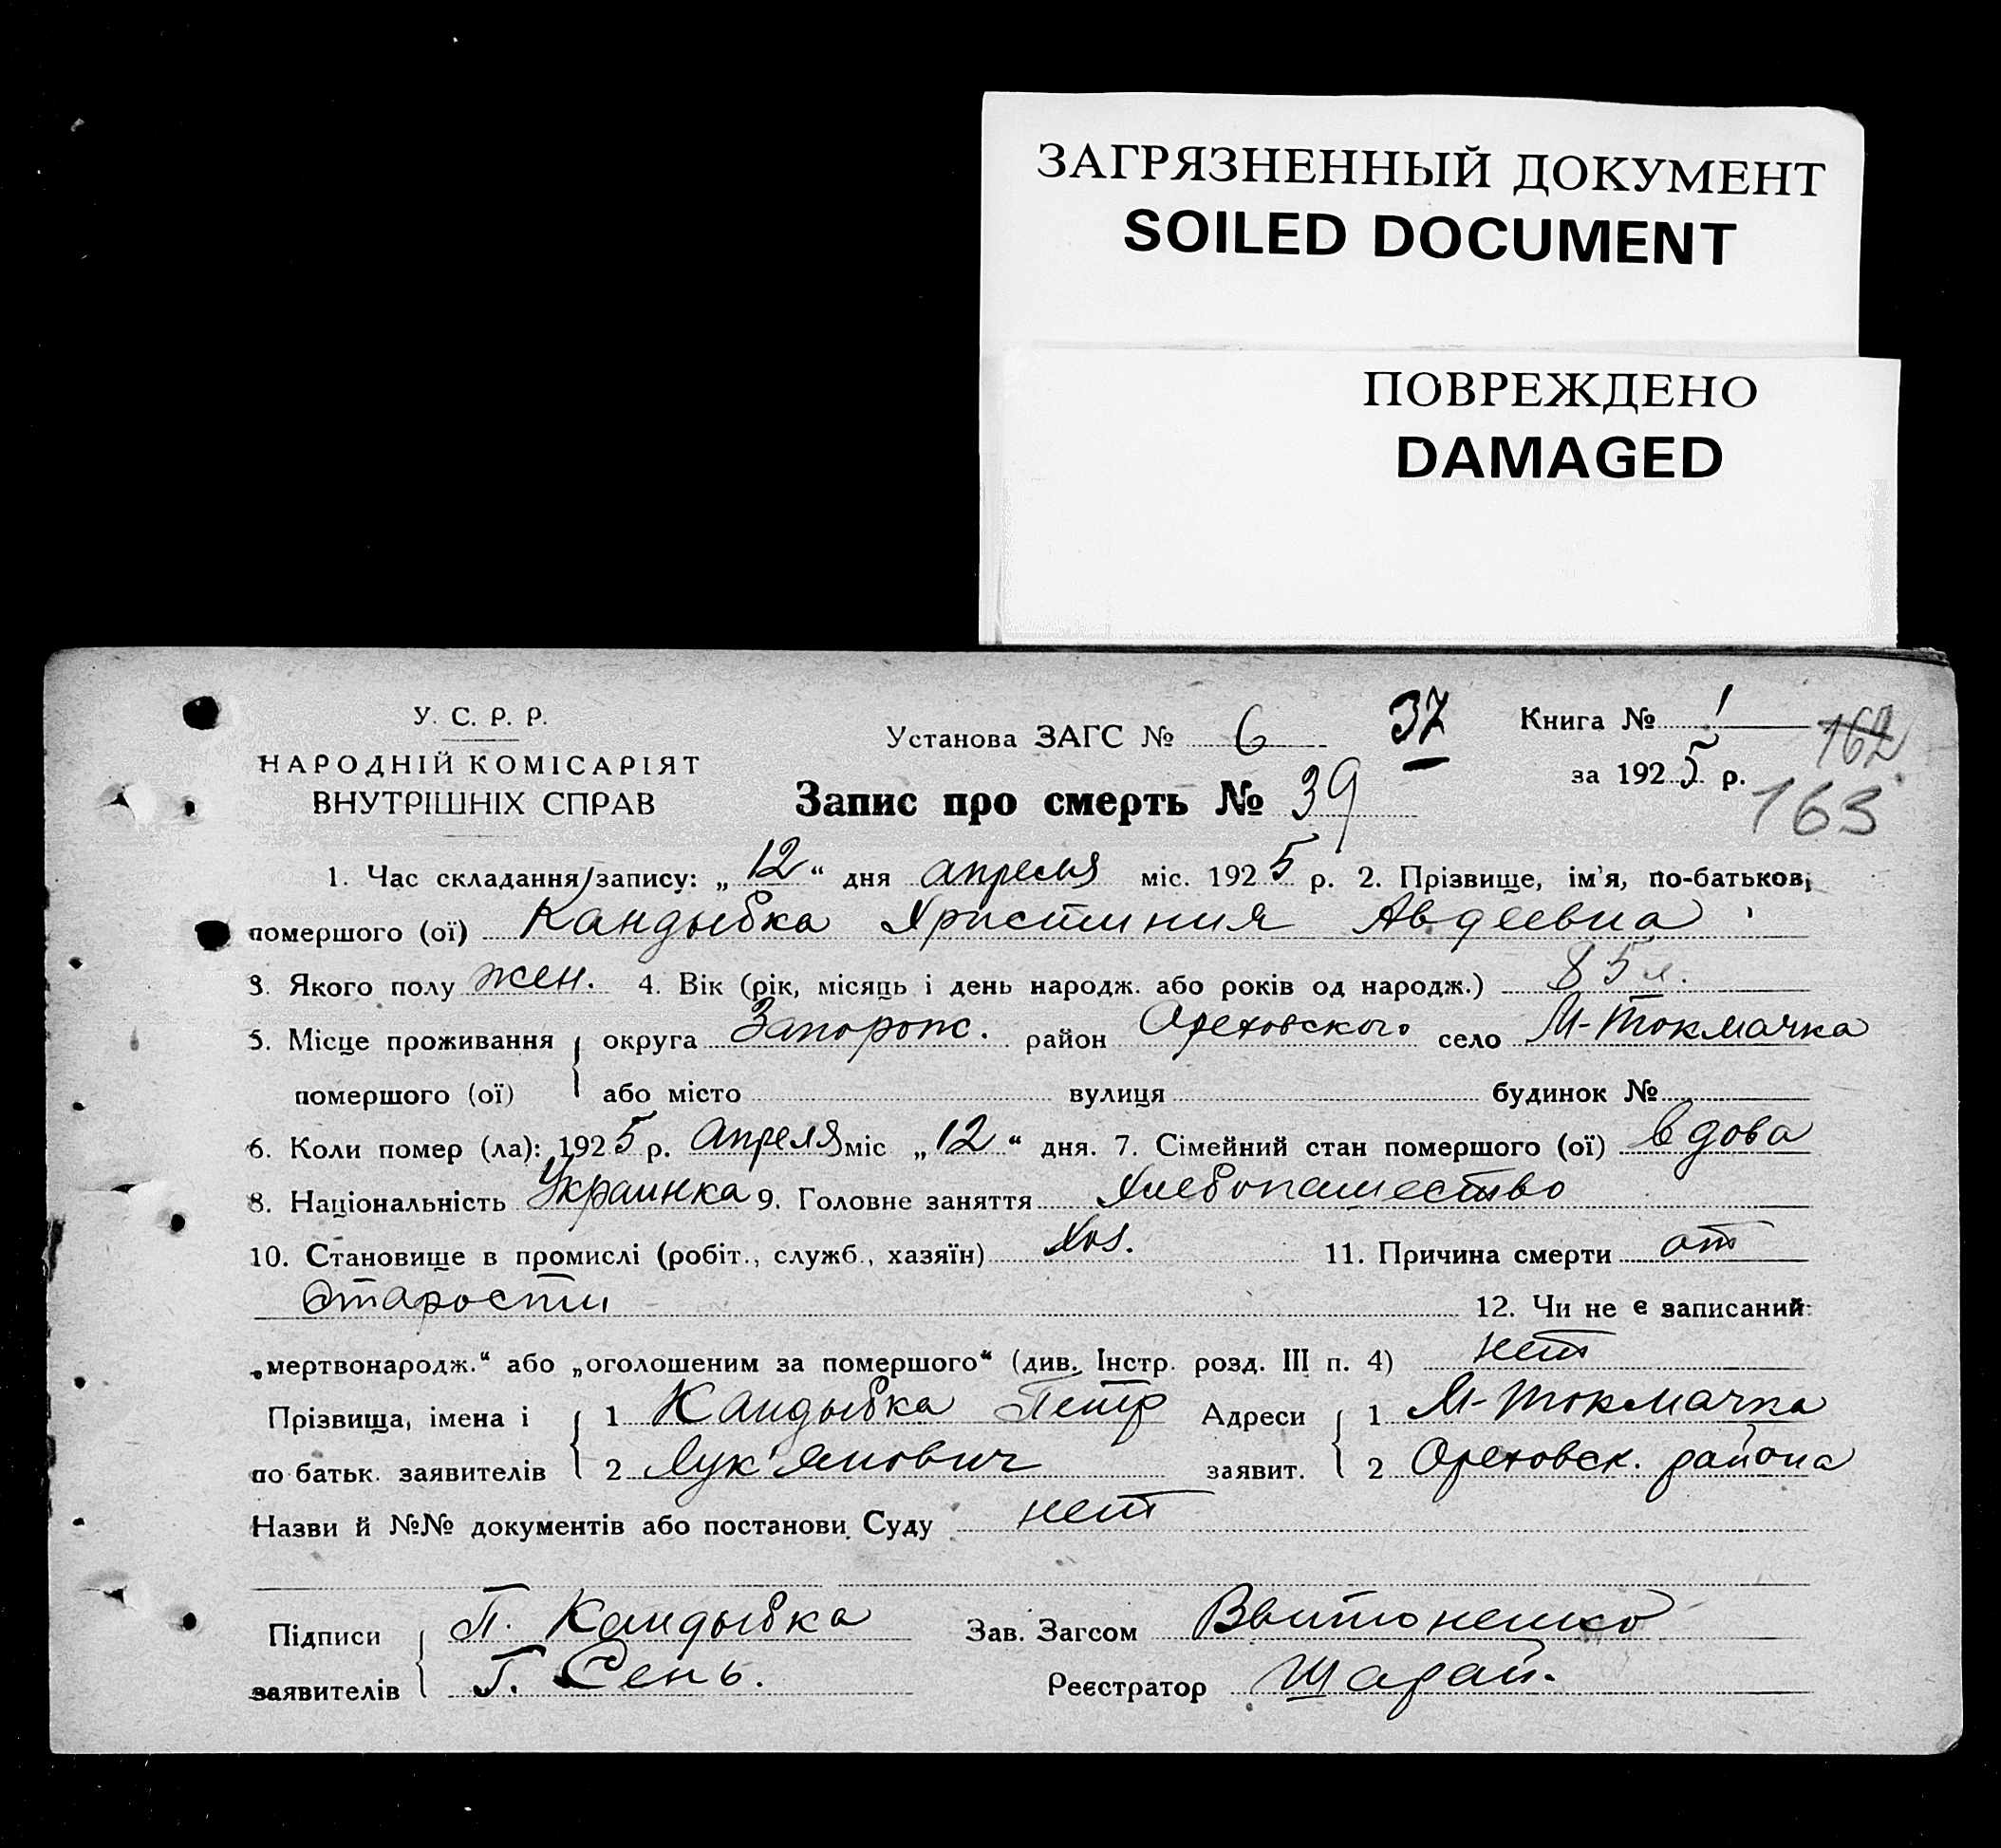 ЗАГРЯЗНЕННЫЙ ДОКУМЕНТ
SOILED DOCUMENT
ПОВРЕЖДЕНО
DAMAGED
У. С. Р. Р.
НАРОДНІЙ КОМІСАРІЯТ
ВНУТРІШНІХ СПРАВ
Установа ЗАГС № 6
37
Книга № 1
за 1925 р.
162
163
Запис про смерть № 39
1. Час складання запису: „12“ дня апреля міс. 1925 р. 2. Прізвище, ім'я, по-батькові
помершого (ої) Кандыбка Христиния Авдеевна
3. Якого полу жен. 4. Вік (рік, місяць і день народж. або років од народж.) 85 л.
5. Місце проживання округа Запорож. район Ореховского село М-Токмачка
помершого (ої) або місто вулиця будинок №
6. Коли помер (ла): 1925 р. Апреля міс „12“ дня. 7. Сімейний стан помершого (ої) вдова
8. Національність Украинка 9. Головне заняття Хлебопашество
10. Становище в промислі (робіт., служб., хазяїн) Хоз. 11. Причина смерти от
старости 12. Чи не є записаний
„мертвонародж.“ або „оголошеним за помершого“ (див. Інстр. розд. III п. 4) нет
Прізвища, імена і 1 Кандыбка Петр Адреси 1 М-Токмачка
по батьк. заявителів 2 Лук'янович заявит. 2 Ореховск. района
Назви й №№ документів або постанови Суду нет
Підписи П. Кандыбка Зав. Загсом
заявителів Г. Сень. Реєстратор Шарай.